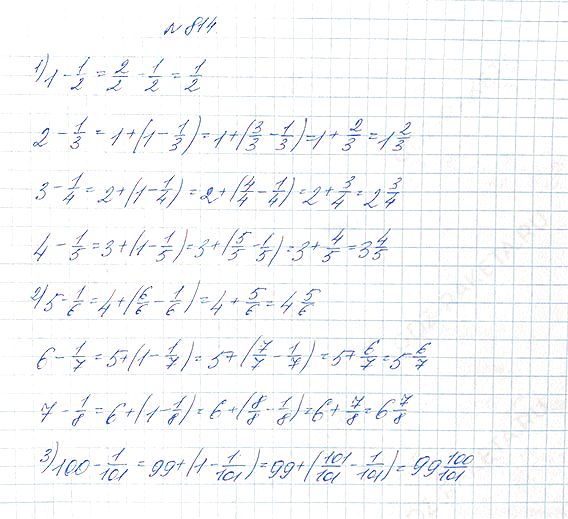 № 814
1) 1 - 1/2 = 2/2 - 1/2 = 1/2
2 - 1/3 = 1 + (1 - 1/3) = 1 + (3/3 - 1/3) = 1 + 2/3 = 1 2/3
3 - 1/4 = 2 + (1 - 1/4) = 2 + (4/4 - 1/4) = 2 + 3/4 = 2 3/4
4 - 1/5 = 3 + (1 - 1/5) = 3 + (5/5 - 1/5) = 3 + 4/5 = 3 4/5
2) 5 - 1/6 = 4 + (6/6 - 1/6) = 4 + 5/6 = 4 5/6
6 - 1/7 = 5 + (1 - 1/7) = 5 + (7/7 - 1/7) = 5 + 6/7 = 5 6/7
7 - 1/8 = 6 + (1 - 1/8) = 6 + (8/8 - 1/8) = 6 + 7/8 = 6 7/8
3) 100 - 1/101 = 99 + (1 - 1/101) = 99 + (101/101 - 1/101) = 99 100/101